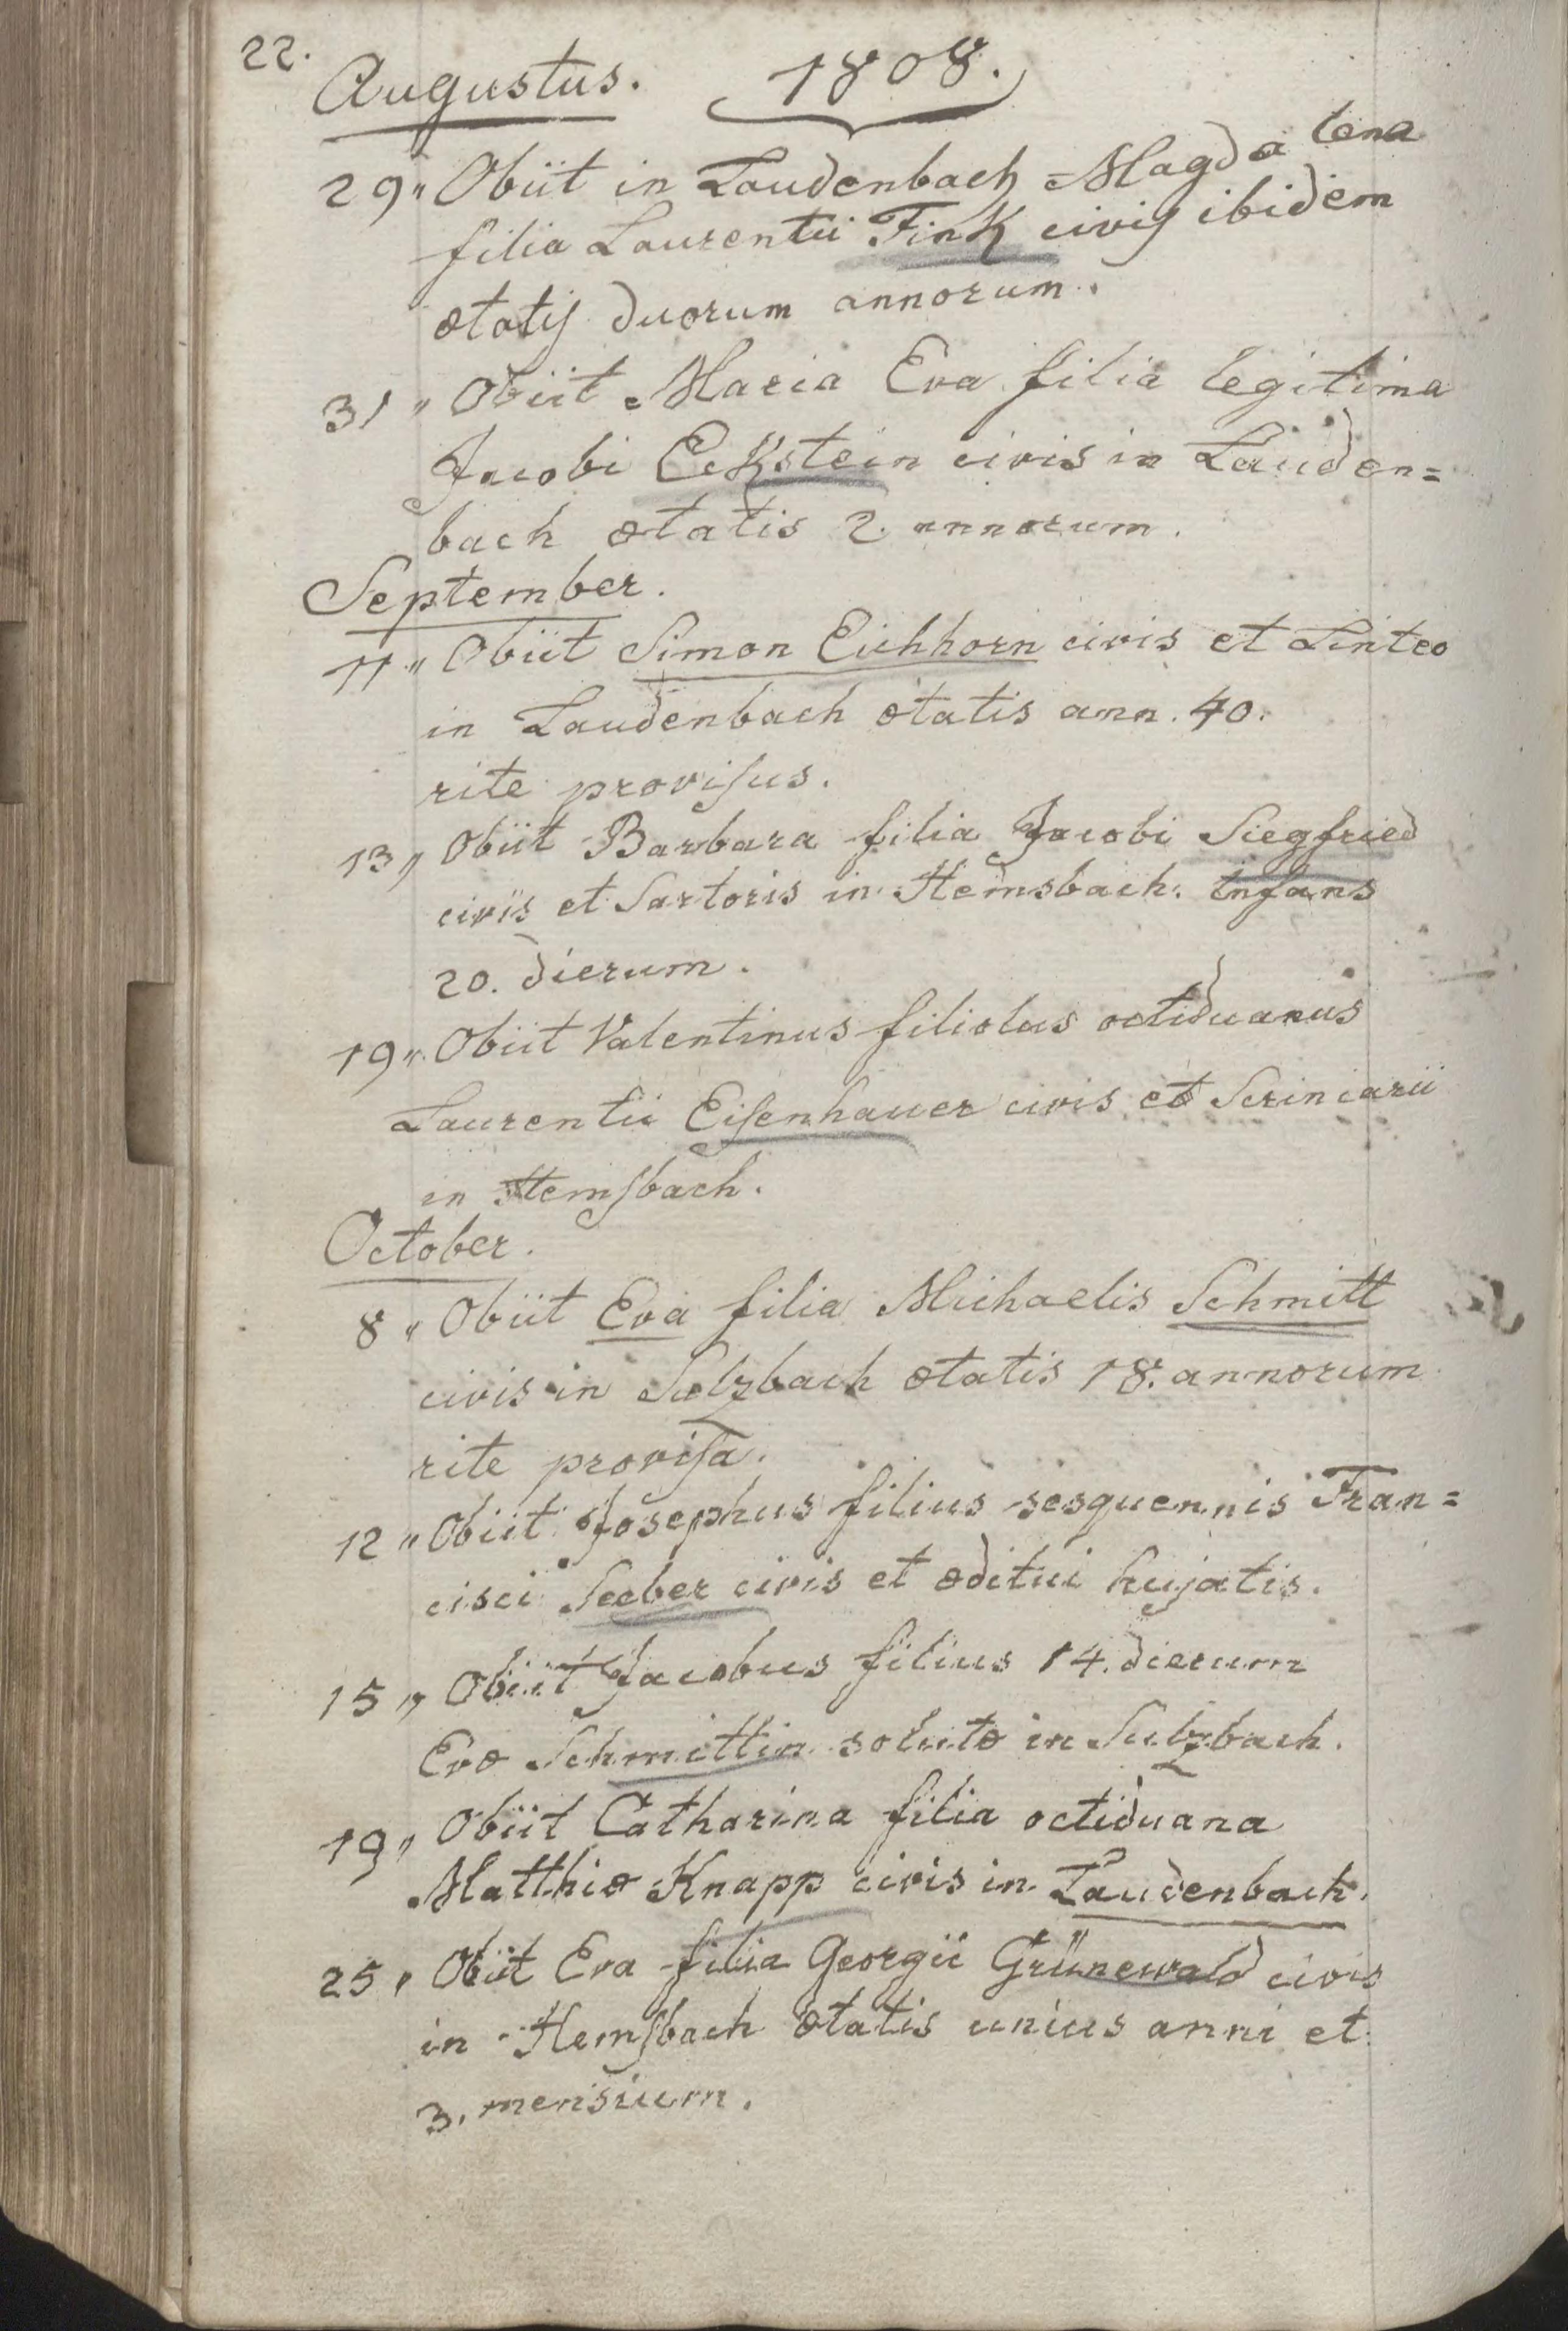 22.
Augustus. 1808.
29 " Obiit in Laudenbach Magdalena
filia Laurentii Fink civis ibidem
ætatis duorum annorum.
31 " Obiit Maria Eva filia legitima
Jacobi Eckstein civis in Lauden=
bach ætatis 2 annorum.
September.
11 " Obiit Simon Eichhorn civis et Linteo
in Laudenbach ætatis ann. 40.
rite provisus.
13 " Obiit Barbara filia Jacobi Siegfried
civis et Sartoris in Hemsbach. Infans
20. dierum.
19 " Obiit Valentinus filiolus octiduanus
Laurentii Eisenhauer civis et Scriniarii
in Hemsbach.
October.
8 " Obiit Eva filia Michaelis Schmitt
civis in Sulzbach ætatis 18. annorum
rite provisa.
12 " Obiit Josephus filius sesquennis Fran=
cisci Seeber civis et æditui hujatis.
15 " Obiit Jacobus filius 14. dierum
Evæ Schmittin solutæ in Sulzbach.
19 " Obiit Catharina filia octiduana
Matthiæ Knapp civis in Laudenbach.
25 " Obiit Eva filia Georgii Grünewald civis
in Hemsbach ætatis unius anni et
3. mensium.